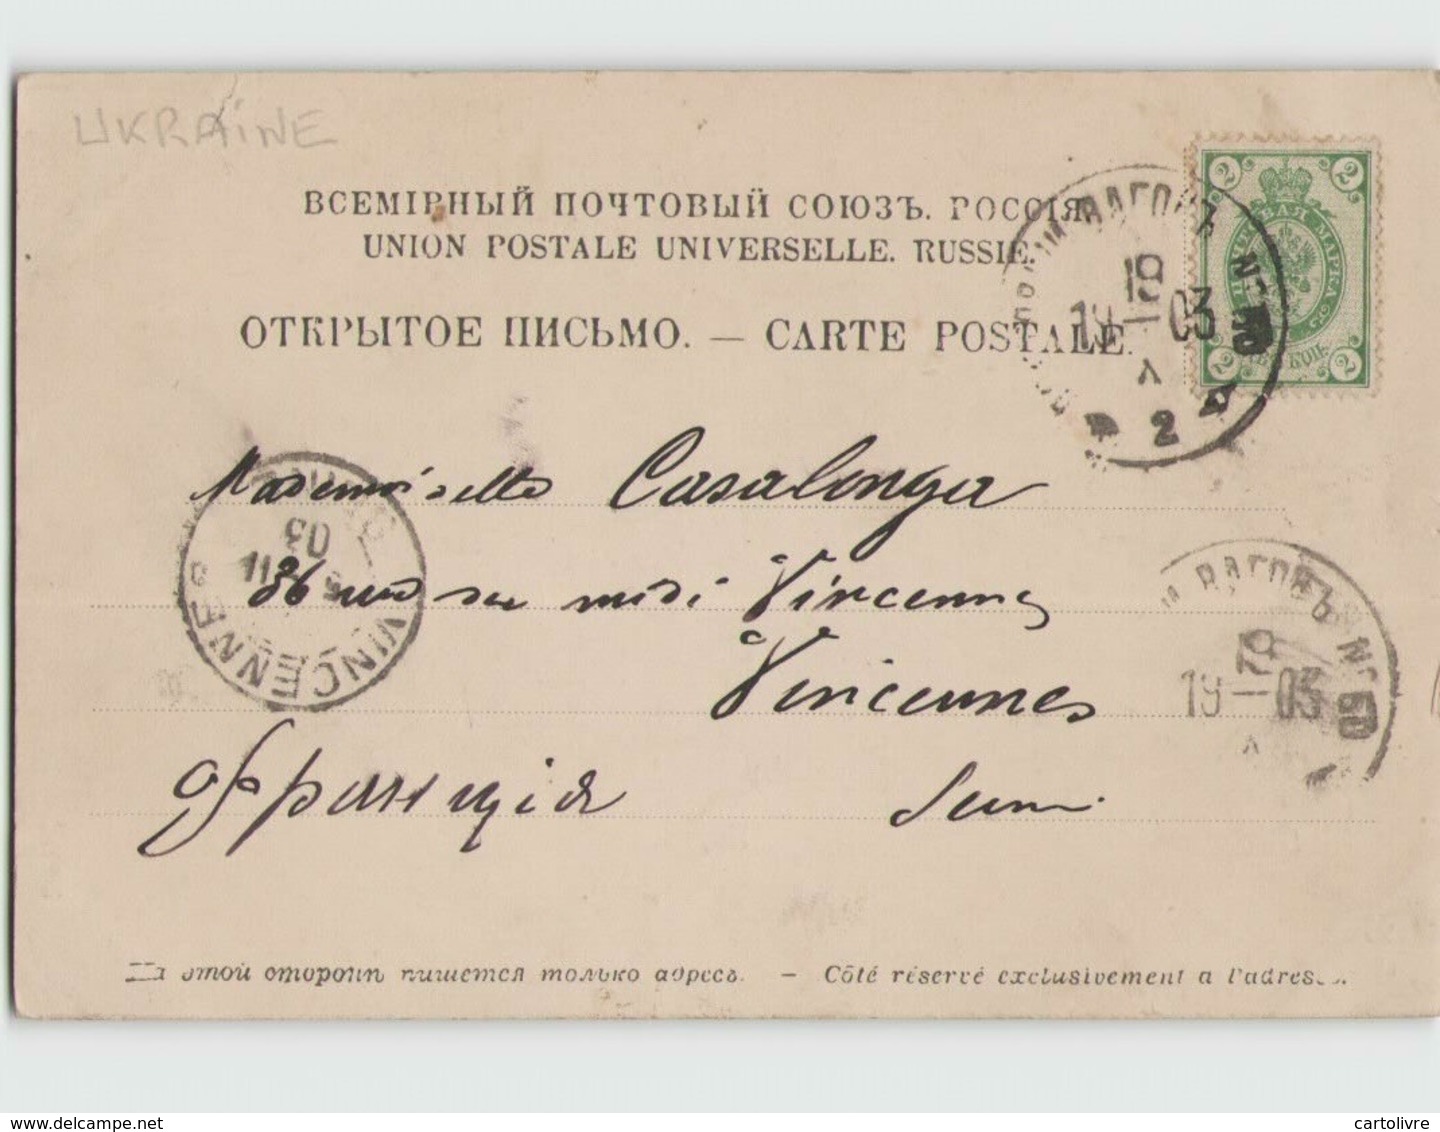 UKRAINE
ВСЕМІРНЫЙ ПОЧТОВЫЙ СОЮЗЪ. РОССІЯ.
UNION POSTALE UNIVERSELLE. RUSSIE.
ОТКРЫТОЕ ПИСЬМО. — CARTE POSTALE.
ВАГОНЪ № 50
19
19 — 03
2
2 2
МАРКА
2 2
Mademoiselle Casalonga
86 midi Vincennes
Vincennes
Франція
VINCENNES
03
ВАГОНЪ № 50
19
19 — 03
На этой сторонѣ пишется только адресъ. — Côté réservé exclusivement a l'adresse.
cartolivre